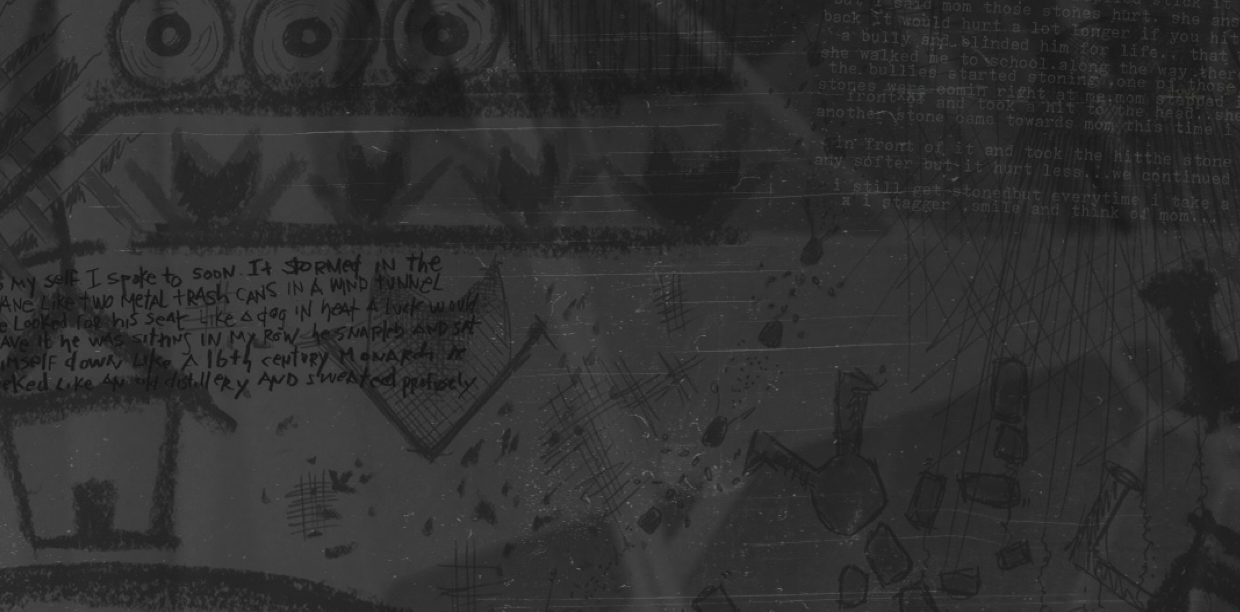 but i said mom those stones hurt. she ans
back it would hurt a lot longer if you hit
a bully and blinded him for life.. that
she walked me to school.along the way ther
the bullies started stoning ,one of those
stones were comin right at me.mom stepped i
front of and took a hit to the head..she
another stone came towards mom this time i
in front of it and took the hitthe stone
any softer but it hurt less...we continued
i still get stonedbut everytime i take a
i stagger .smile and think of mom...
s my self I spoke to soon. It stormed in the
ANE Like two Metal trash cans in a wind tunnel
e Looked for his seat Like A dog in heat A luck would
AVE it he was sitting in My Row. he SNAPPED AND SAt
imself down Like A 16th century Monarch. He
eeked Like AN old distillery AND sweated profusely